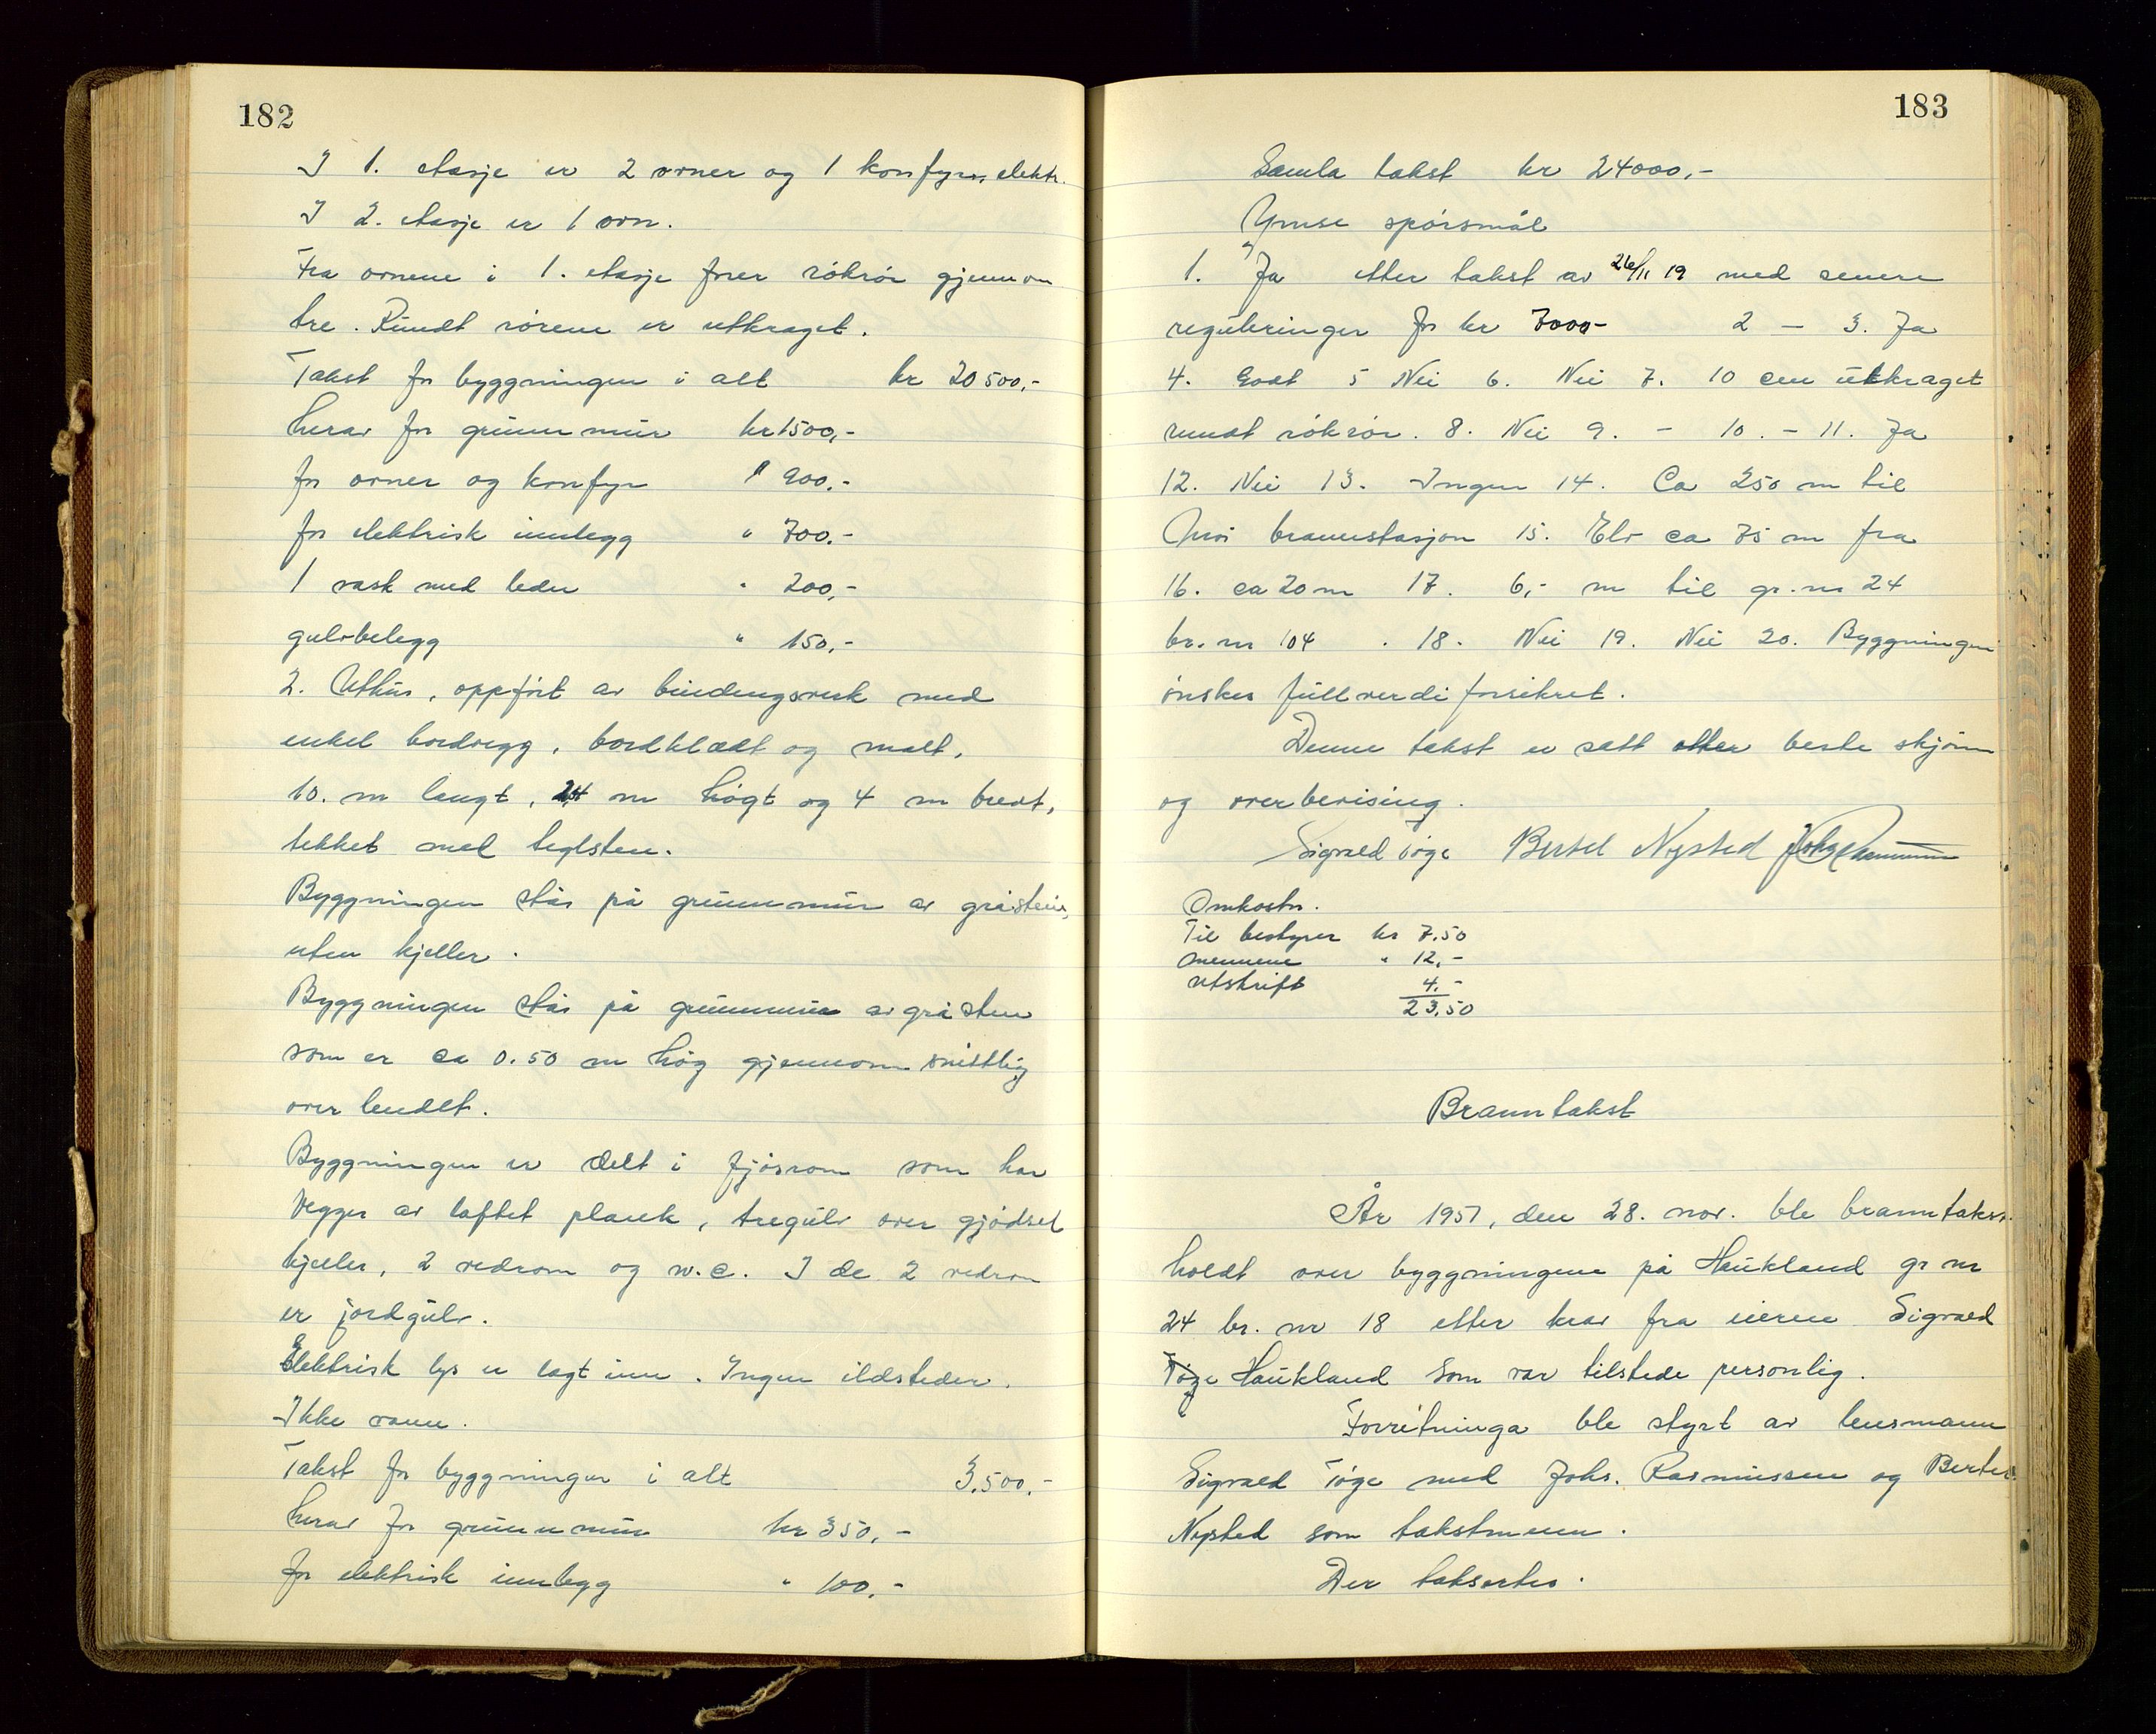 182
I 1. etasje er 2 ovner og 1 komfyr, elektr.
I 2. etasje er 1 ovn.
Fra ovnene i 1. etasje fører rökrör gjennom
tre. Rundt rörene er utkraget.
Takst for byggningen i alt kr 20500,-
herav for grunnmur kr 1500,-
for ovner og komfyr " 900.-
for elektrisk innlegg " 700.-
1 vask med leder " 200,-
gulvbelegg " 150,-
2. Uthus, oppfört av bindingsverk med
enkel bordvegg, bordklædt og malt,
10. m langt, m högt og 4 m bredt,
tekket med teglsten.
Byggningen står på grunnmur av gråstein,
uten kjeller.
Byggningen står på grunnmur av gråsten
som er ca 0.50 m hög gjennomsnittlig
over lendet.
Byggningen er delt i fjösrom som har
vegger av laftet plank, tregulv over gjödsel
kjeller, 2 vedrom og w.c. I de 2 vedrom
er jordgulv.
Elektrisk lys er lagt inn. Ingen ildsteder.
Ikke vann.
Takst for byggningen i alt 3.500.-
herav for grunnmur kr 350,-
for elektrisk innlegg " 100,-
183
Samla takst kr 24000,-
Ymse spörsmål
1. Ja etter takst av 26/11 19 med senere
reguleringer for kr 7000- 2 - 3. Ja
4. Godt 5 Nei 6. Nei 7. 10 cm utkraget
rundt rökrör. 8. Nei 9. - 10. - 11. Ja
12. Nei 13. Ingen 14. Ca 250 m til
Moi brannstasjon 15. Elv ca 75 m fra
16. ca 20 m 17. 6,- m til gr.nr 24
br.nr 104 . 18. Nei 19. Nei 20. Byggningen
önskes fullverdiforsikret.
Denne takst er satt etter beste skjönn
og overbevising.
Sigvald Töge Bertel Nysted Johs Rasmussen
Omkostn.
Til bestyrer kr 7.50
mennene " 12,-
utskrift 4.-
23.50
Branntakst
År 1957, den 28. nov. ble branntakst
holdt over byggningene på Haukland gr nr
24 br. nr 18 etter krav fra eieren Sigvald
Töge Haukland som var tilstede personlig.
Forretninga ble styrt av lensmann
Sigvald Töge med Johs. Rasmussen og Bertel
Nysted som takstmenn.
Der taksertes.